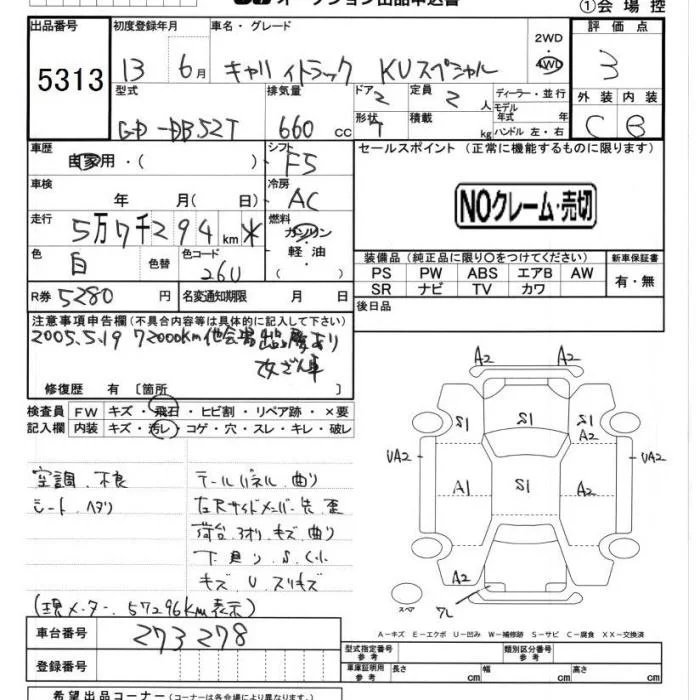 オークション出品申込書
①会場控
出品番号 5313
初度登録年月 13 6月
車名・グレード キャリイトラック KUスペシャル
2WD
4WD
評価点 3
外装 C 内装 B
型式 GD-DB52T
排気量 660 cc
ドア 2 定員 2 人
形状 T 積載 kg
ディーラー・並行
モデル年式 年
ハンドル 左・右
車歴 自家用・( )
シフト F5
セールスポイント (正常に機能するものに限ります)
NOクレーム・売切
車検 年 月(日)
冷房 AC
走行 5万7千294km *
燃料 ガソリン・軽油・( )
色 白 色替 色コード 26U
装備品 (純正品に限り〇をつけてください)
新車保証書
PS PW ABS エアB AW
SR ナビ TV カワ
有・無
R券 5280 円 名変通知期限 月 日
後日品
注意事項申告欄 (不具合内容等は具体的に記入して下さい)
2005.5.19 72000km他会場出品歴あり
改ざん車
修復歴 有 [箇所
検査員 FW キズ・飛石・ヒビ割・リペア跡・×要
記入欄 内装 キズ・汚レ・コゲ・穴・スレ・キレ・破レ
空調.不良
シート.ヘタリ
テールパネル.曲り
左Rサイドメンバー先.歪
荷台.3オリ.キズ.曲り
下回り.S.C小
キズ.U.スリキズ
(現メーター.57296km表示)
A2 A2
S1 S1 S1
A2
UA2 UA2
A1 S1 A2
A2
ワレ
スペア
A-キズ E-エクボ U-凹み W-補修跡 S-サビ C-腐食 XX-交換済
車台番号 273278
登録番号
型式指定番号 参考
類別区分番号 参考
車庫証明用 参考 長さ cm 幅 cm 高さ cm
希望出品コーナー (コーナーは各会場により異なります)